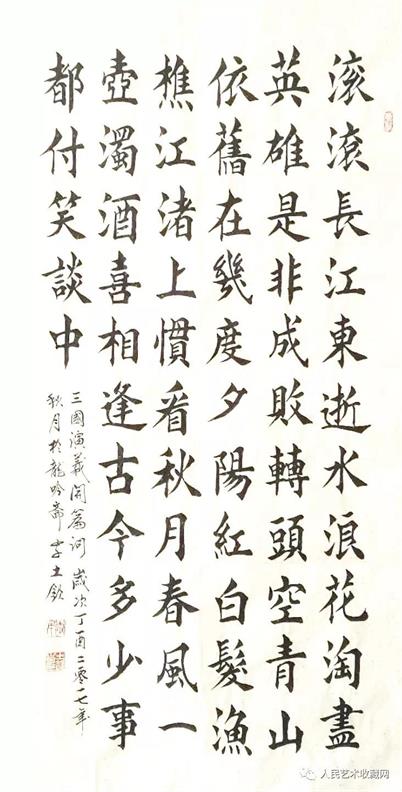 滚滚長江東逝水浪花淘盡
英雄是非成敗轉頭空青山
依舊在幾度夕陽紅白髮漁
樵江渚上慣看秋月春風一
壺濁酒喜相逢古今多少事
都付笑談中
三國演義開篇詞 歲次丁酉二零一七年
秋月於龍吟齋 李
人民艺术收藏网